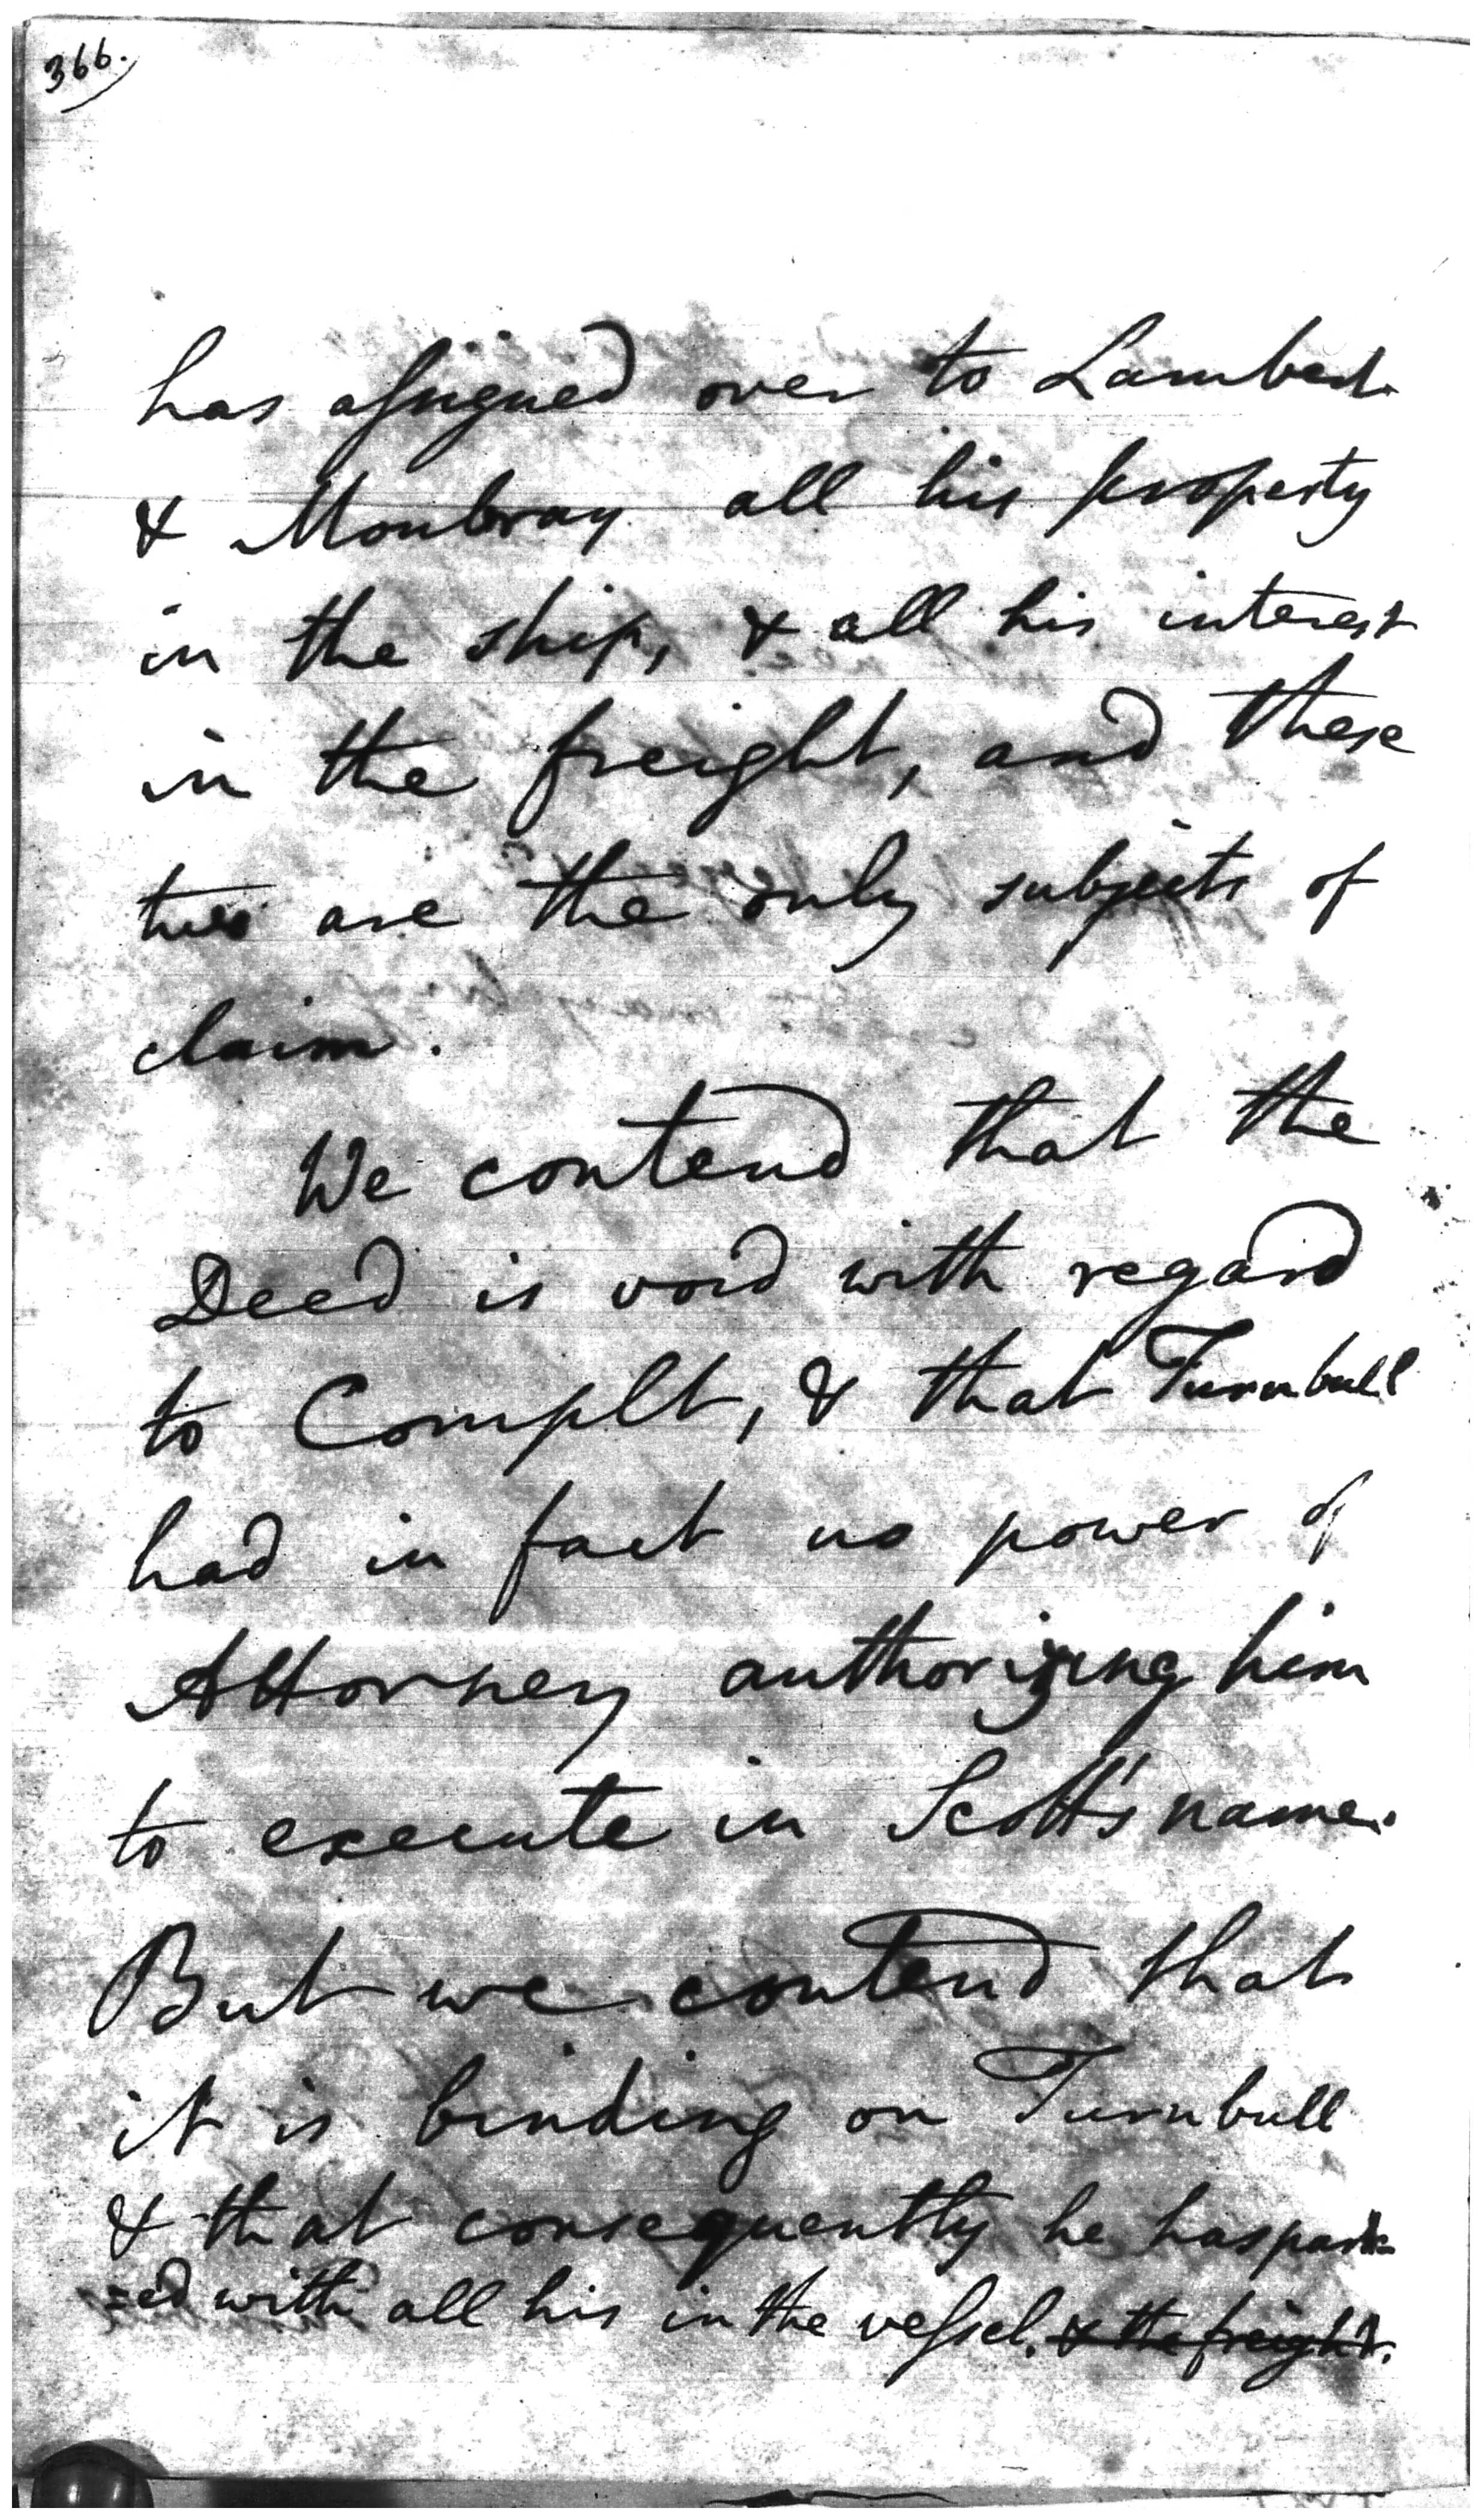 366.
has assigned over to Lambert
& Moubray all his property
in the ship, & all his interest
in the freight, and these
two are the only subjects of
claim.
We contend that the
Deed is void with regard
to Complt, & that Turnbull
had in fact no power of
Attorney authorizing him
to execute in Scott's name.
But we contend that
it is binding on Turnbull
& that consequently he has part=
=ed with all his in the vessel. & the freight.